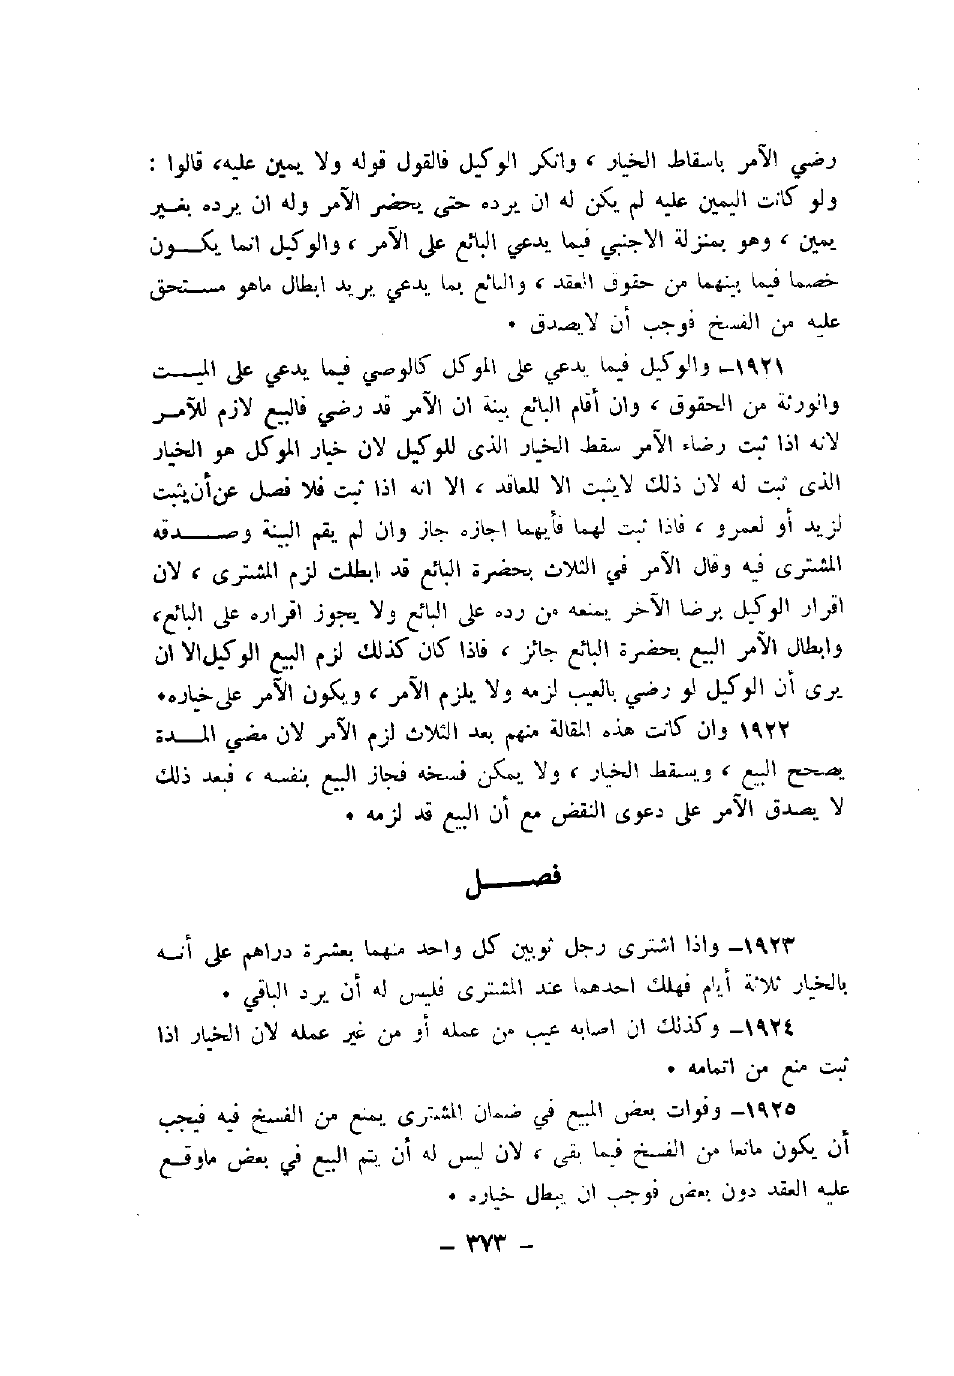 رضي الآمر باسقاط الخيار ، وانكر الوكيل فالقول قوله ولا يمين عليه، قالوا :
ولو كانت اليمين عليه لم يكن له ان يرده حتى يحضر الآمر وله ان يرده بغير
يمين ، وهو بمنزلة الاجنبي فيما يدعي البائع على الآمر ، والوكيل انما يكـــون
خصما فيما بينهما من حقوق العقد ، والبائع بما يدعي يريد ابطال ماهو مستحق
عليه من الفسخ فوجب أن لايصدق .
١٩٢١- والوكيل فيما يدعي على الموكل كالوصي فيما يدعي على الميـــت
والورثة من الحقوق ، وان أقام البائع بينة ان الآمر قد رضي فالبيع لازم للآمــر
لانه اذا ثبت رضاء الآمر سقط الخيار الذى للوكيل لان خيار الموكل هو الخيار
الذى ثبت له لان ذلك لايثبت الا للعاقد ، الا انه اذا ثبت فلا فصل عن أن يثبت
لزيد أو لعمرو ، فاذا ثبت لهما فأيهما اجازه جاز وان لم يقم البينة وصــــدقه
المشترى فيه وقال الآمر في الثلاث بحضرة البائع قد ابطلت لزم المشترى ، لان
اقرار الوكيل برضا الآخر يمنعه من رده على البائع ولا يجوز اقراره على البائع،
وابطال الآمر البيع بحضرة البائع جائز ، فاذا كان كذلك لزم البيع الوكيل الا ان
يرى أن الوكيل لو رضي بالعيب لزمه ولا يلزم الآمر ، ويكون الآمر على خياره.
١٩٢٢ وان كانت هذه المقالة منهم بعد الثلاث لزم الآمر لان مضي المـــدة
يصحح البيع ، ويسقط الخيار ، ولا يمكن فسخه فجاز البيع بنفسه ، فبعد ذلك
لا يصدق الآمر على دعوى النقض مع أن البيع قد لزمه .
فصـــــل
١٩٢٣- واذا اشترى رجل ثوبين كل واحد منهما بعشرة دراهم على أنــه
بالخيار ثلاثة أيام فهلك احدهما عند المشترى فليس له أن يرد الباقي .
١٩٢٤- وكذلك ان اصابه عيب من عمله أو من غير عمله لان الخيار اذا
ثبت منع من اتمامه .
١٩٢٥- وفوات بعض المبيع في ضمان المشترى يمنع من الفسخ فيه فيجب
أن يكون مانعا من الفسخ فيما بقى ، لان ليس له أن يتم البيع في بعض ماوقــع
عليه العقد دون بعض فوجب ان يبطل خياره .
- ٣٧٣ -